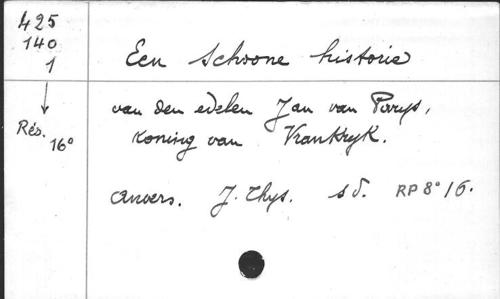 425
140
1
Rés. 16°
Een schoone historie
van den edelen Jan van Parys,
koning van Vrankryk.
Anvers. J. Thys. s d. RP 8° 16.